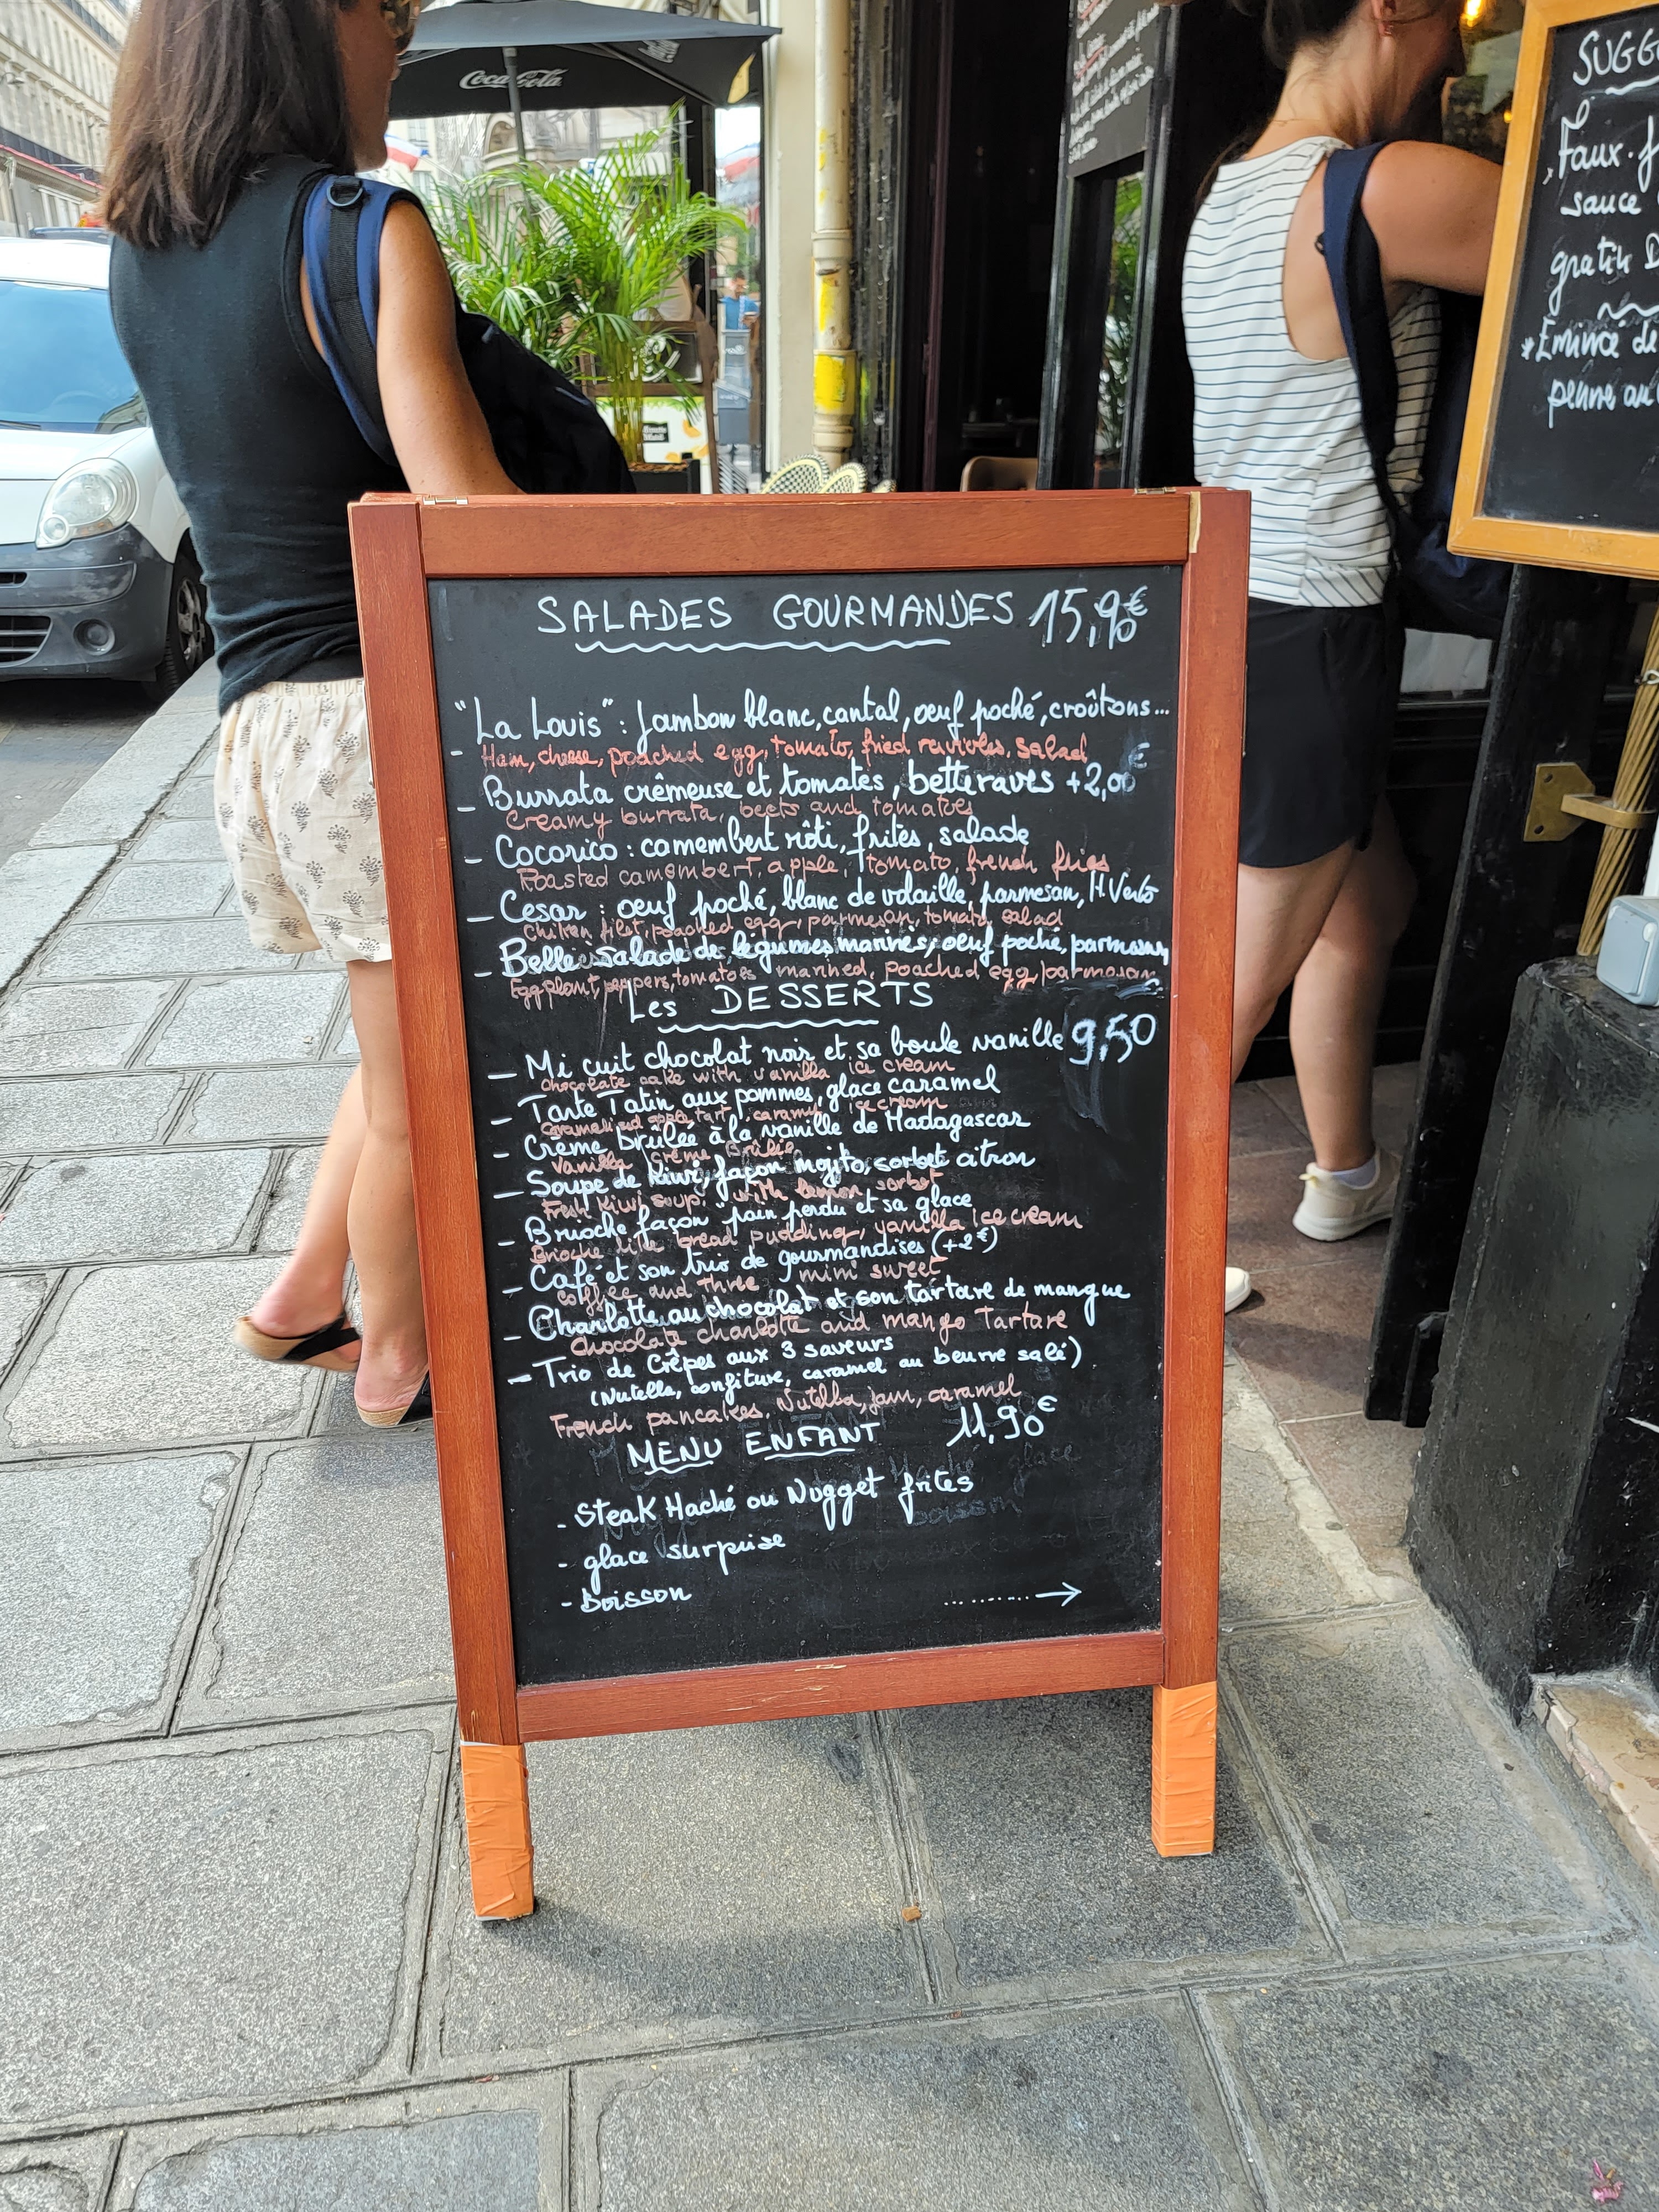 Coca-Cola
SUGG
Faux-f
sauce
gratin D
*Émincé de
penne au
SALADES GOURMANDES 15,90€
"La Louis" : Jambon blanc, cantal, oeuf poché, croûtons...
- Ham, cheese, poached egg, tomato, fried ravioles, salad
- Burrata crêmeuse et tomates, betteraves +2,00€
Creamy burrata, beets and tomatoes
- Cocorico : camembert rôti, frites, salade
Roasted camembert, apple, tomato, french fries
- Cesar : oeuf poché, blanc de volaille, parmesan, H.Verts
Chiken filet, poached egg, parmesan, tomato, salad
- Belle salade de légumes marinés, oeuf poché, parmesan,
Eggplant, peppers, tomatoes marined, poached egg, parmesan
Les DESSERTS
- Mi cuit chocolat noir et sa boule vanille 9,50
chocolate cake with vanilla ice cream
- Tarte Tatin aux pommes, glace caramel
caramelised apple tart, caramel ice cream
- Crème brûlée à la vanille de Madagascar
Vanilla crème Brûlée
- Soupe de kiwi, façon mojito, sorbet citron
Fresh kiwi soup with lemon sorbet
- Brioche façon "pain perdu et sa glace
Brioche like bread pudding, vanilla ice cream
- Café et son trio de gourmandises (+2€)
coffee and three mini sweet
- Charlotte au chocolat et son tartare de mangue
chocolate charlotte and mango Tartare
- Trio de Crêpes aux 3 saveurs
(Nutella, confiture, caramel au beurre salé)
French pancakes. Nutella, jam, caramel
MENU ENFANT 11,90€
- Steak Haché ou Nugget frites
- glace surprise
- Boisson
........→